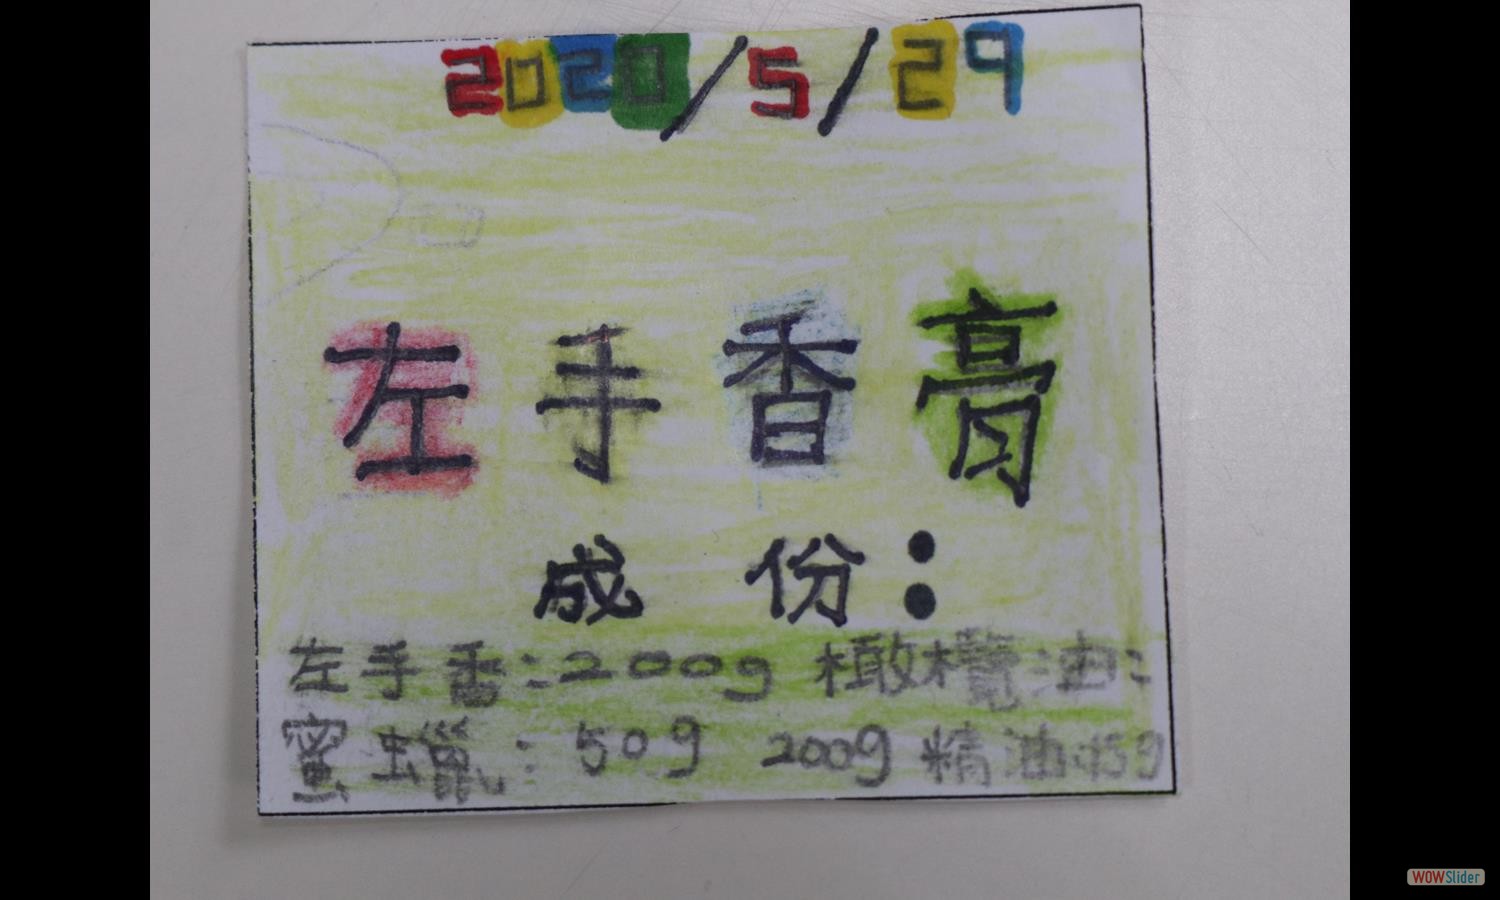 2020/5/29
左手香膏
成份：
左手香：200g 橄欖油：
蜜蠟：50g 200g 精油
WOWSlider